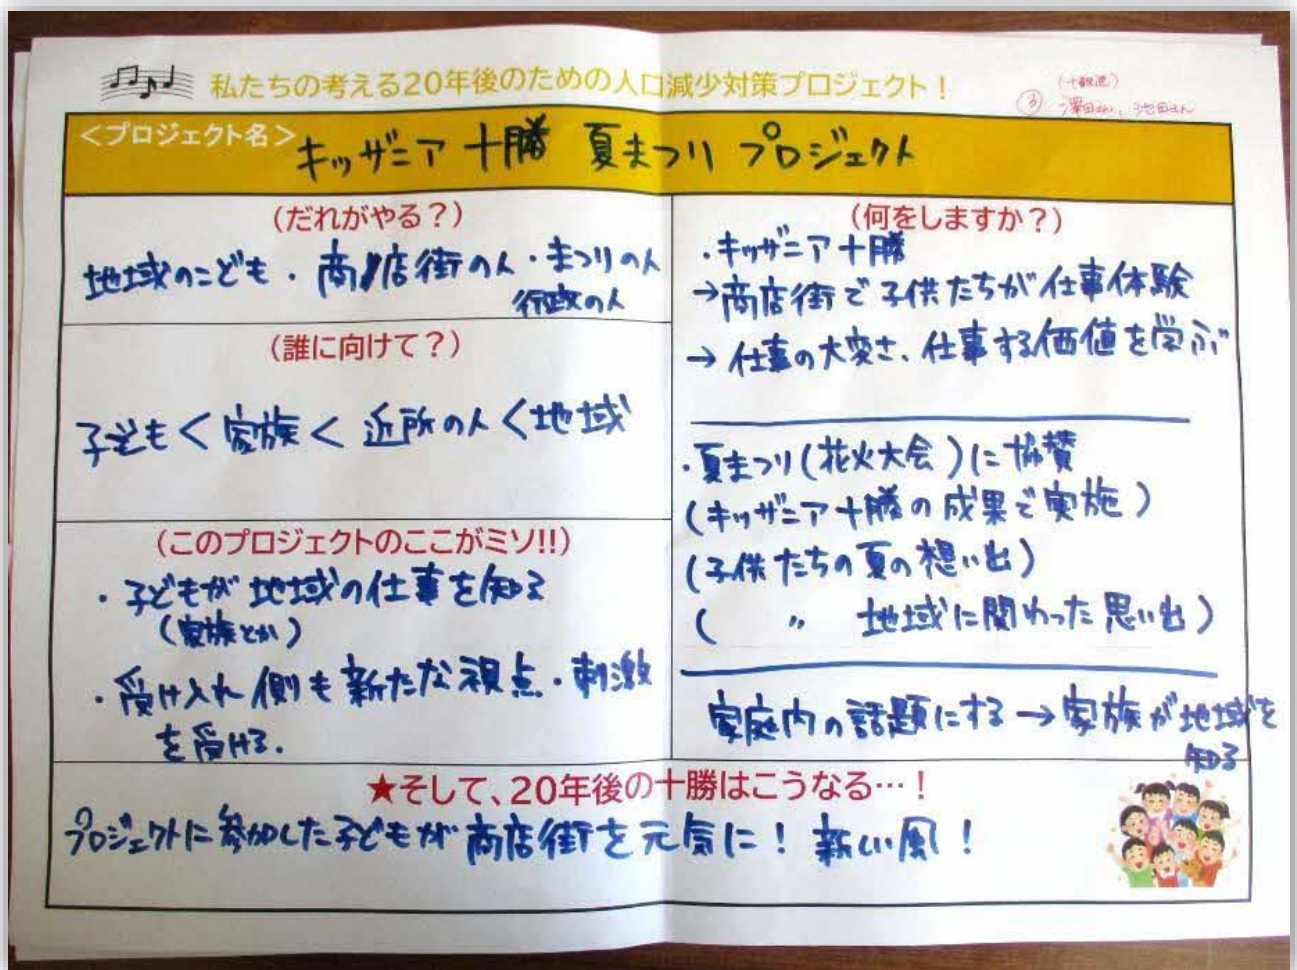 私たちの考える20年後のための人口減少対策プロジェクト！
③ 澤田さん, 池田さん
＜プロジェクト名＞ キッザニア 十勝 夏まつり プロジェクト
(だれがやる？)
地域のこども・商店街の人・まつりの人
行政の人
(誰に向けて？)
子ども < 家族 < 近所の人 < 地域
(このプロジェクトのここがミソ!!)
・子どもが地域の仕事を知る
(家族とか)
・受け入れ側も新たな視点・刺激
を受ける.
(何をしますか？)
・キッザニア十勝
→商店街で子供たちが仕事体験
→仕事の大変さ、仕事する価値を学ぶ
・夏まつり(花火大会)に協賛
(キッザニア十勝の成果で実施)
(子供たちの夏の想い出)
( 〃 地域に関わった思い出)
家庭内の話題にする→家族が地域を
知る
★そして、20年後の十勝はこうなる…！
プロジェクトに参加した子どもが商店街を元気に！新しい風！